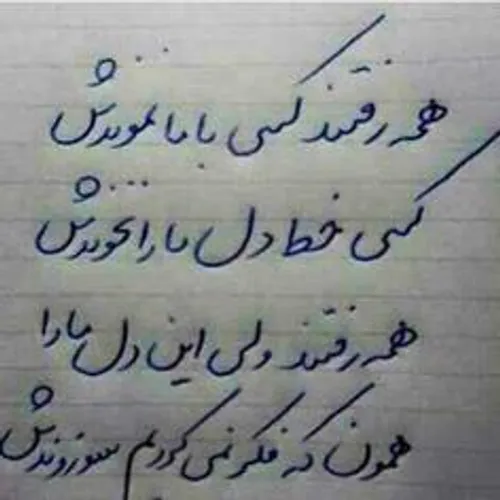 همه رفتند کسی با ما نموندش
کسی خط دل ما را نخوندش
همه رفتند ولی این دل ما را
همون که فکر نمی کردیم سوزوندش